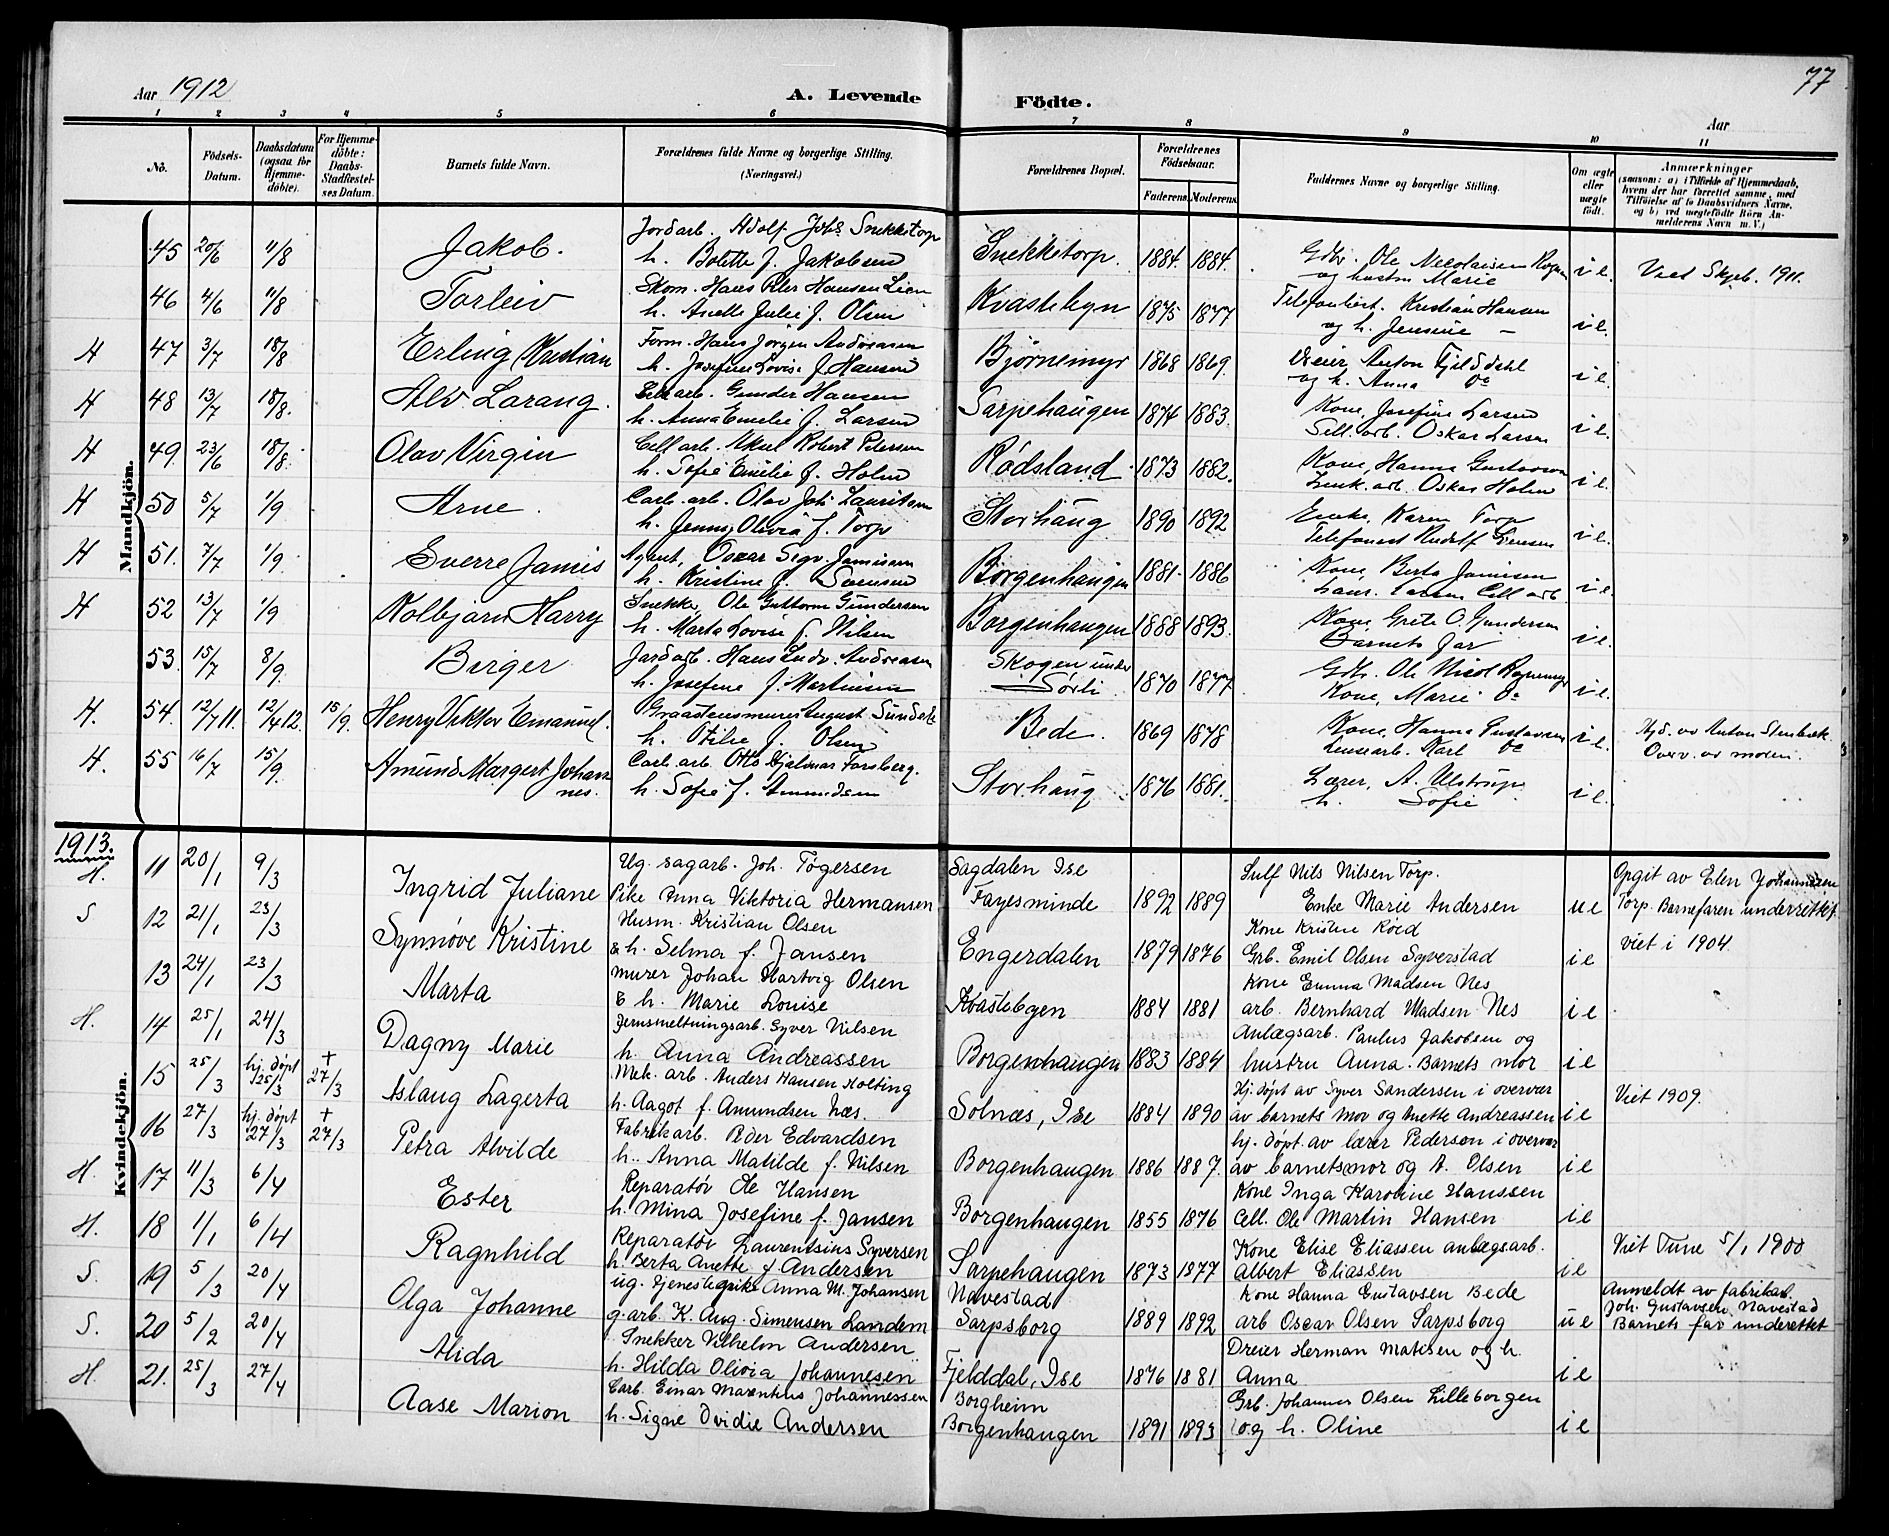 Aar 1912
A. Levende Födte.
77
Aar
1 2 3 4 5 6 7 8 9 10 11
No. Födsels-Datum. Daabsdatum (ogsaa for Hjemme-döbte). For Hjemme-döbte: Daabs-Stadfæstel-ses Datum. Barnets fulde Navn. Forældrenes fulde Navne og borgerlige Stilling. (Næringsvei.) Forældrenes Bopæl. Forældrenes Födselsaar. Faderens. Moderens. Faddernes Navne og borgerlige Stilling. Om ægte eller uægte födt. Anmærkninger (saasom: a) i Tilfælde af Hjemmedaab, hvem der har forrettet samme, med Tilföielse af to Daabsvidners Navne, og b) ved uægtefödte Börn An-melderens Navn m. V.)
Mandkjön.
45 20/6 11/8 Jakob. Jordarb. Adolf Johs Snekkitorp
h. Bolette f. Jakobsen Snekkitorp. 1884. 1884. Gdbr. Ole Nicolaisen
og hustru Marie i e. Viet Skjeb. 1911.
46 4/6 11/8 Torleiv Skom. Hans Peter Hansen Lien
h. Anette Julie f. Olsen Kvastebyn 1875 1877 Kristian Hansen
og h. Jensine — i e.
H 47 3/7 18/8 Erling Kristian Form. Hans Jørgen Andreasen
h. Josefine Lovise f. Hansen Bjørnemyr 1868 1869. Dreier Anton Fjelddahl
og h. Anna Do i e.
H 48 13/7 18/8. Alv Larang. Cell arb. Gunder Hansen
h. Anna Emelie f. Larsen Sarpehaugen 1874 1883. Kone, Josefine Larsen
Cell. arb. Oskar Larsen i e.
H 49. 23/6 18/8. Olav Virgin Cell arb. Aksel Robert Petersen
h. Sofie Emilie f. Holm Rødsland 1873 1882. Kone, Hanna Gustavson
Zink. arb. Oskar Holm i e.
H 50 5/7 1/9 Arne. Carb. arb. Olav Joh. Lauritsen
h. Jenny Olivia f. Torp Storhaug 1890 1892 Enke, Karen Torp
Telefonist Rudolf Jensen i e.
H 51. 7/7 1/9. Sverre Jamis Agent, Oscar Sigv. Jamissen
h. Kristine f. Svensen Borgenhaugen 1881. 1886 Kone Berta Jamisen
Laur. Larsen Cell arb. i e.
H 52 13/7 1/9 Kolbjørn Harry Snekke, Ole Guttorm Gundersen
h. Marta Lovise f. Nilsen Borgenhaugen 1888 1893. Kone, Grete O. Gundersen
Barnets far i e.
53. 15/7 8/9. Birger Jordarb. Hans Ludv. Andreasen
h. Josefine f. Martinsen Skogen under
Sørli 1870 1877 Gdb. Ole Nicol
Kone, Marie Do i e.
H. 54. 12/7 11. 12/4 12. 15/9. Henry Viktor Emanuel. Graastensmurer August Sundell
h. Otilie f. Olsen Bede. 1869 1878 Kone, Hanna Gustavsen
Karl Do i e. Hjd. av Anton Stenbæk.
Overv. av moren.
H. 55 16/7 15/9. Amund Margert Johan-
nes. Carb. arb. Otto Hjalmar Forsberg.
h. Sofie f. Amundsen Storhaug 1876 1881. Lærer, A. Ulstrup
h. Sofie i e.
1913.
Kvindekjön.
H. 11 20/1 9/3 Ingrid Juliane Ug. sagarb. Joh. Tøgersen
Pike Anna Viktoria Hermansen Sagdalen Ise
Fayesminde 1892 1889 Sulf Nils Nilsen Torp.
Enke Marie Andersen u e Opgit av Elen Johannesen
Torp. Barnefaren underrettet.
S 12 21/1 23/3 Synnøve Kristine Husm. Kristian Olsen
& h. Selma f. Jansen Engerdalen 1879 1876 Kone Kristine Røed
Grb. Emil Olsen Syverstad i e viet i 1904.
13 24/1 23/3 Marta murer Johan Hartvig Olsen
& h. Marie Louise Kvastebyen 1884 1881 Kone Emma Madsen Nes
arb. Bernhard Madsen Nes i e
H. 14 25/1 24/3 Dagny Marie Jernsmeltningsarb. Syver Nilsen
h. Anna Andreassen Borgenhaugen 1883 1884 Anlægsarb. Paulus Jakobsen og
hustru Anna. Barnets mor i e
15 25/3 hj. døpt 25/3 + 27/3 Aslaug Lagerta Mek. arb. Anders Hansen Kolting
h. Aagot f. Amundsen Næs. Solnæs, Ise 1884 1890 Hj. døpt av Syver Sandersen i overvær
av barnets mor og Anette Andreassen i e Viet 1909.
16 27/3 hj. døpt 27/3 + 27/3 Petra Alvilde Fabrikarb. Peder Edvardsen
h. Anna Matilde f. Nilsen Borgenhaugen 1886 1887. hj. døpt av lærer Pedersen i overvær
av barnets mor og A. Olsen i e
H. 17 11/3 6/4 Ester Reparatør Ole Hansen
h. Mina Josefine f. Jansen Borgenhaugen 1855 1876 Kone Inga Karoline Hanssen
Cell. Ole Martin Hansen i e
H. 18 1/1 6/4 Ragnhild Reparatør Laurentsius Syversen
h. Berta Anette f Andersen Sarpehaugen 1873 1877 Kone Elise Eliassen anlægsarb.
Albert Eliassen i e Viet Tune 5/1 1900
S. 19 5/3 20/4 Olga Johanne ug. tjenestepike Anna M. Johansen
g. arb. K. Aug. Simensen Landem Navestad
Sarpsborg 1889 1892 Kone Hanna Gustavsen Bede
arb Oscar Olsen Sarpsborg u e Anmeldt av fabrikar.
Joh. Gustavsen Navestad
Barnets far underettet
S. 20 5/2 20/4 Alida Snekker Vilhelm Andersen
h. Hilda Olivia Johannesen Fjelddal, Ise 1876 1881 Dreier Herman Matisen og h.
Anna i e
H. 21. 25/3 27/4 Aase Marion Carb. Einar Marentius Johannessen
h. Signe Ovidie Andersen Borgheim
Borgenhaugen 1891 1893 Grb. Johannes Olsen Lilleborgen
og h. Oline i e